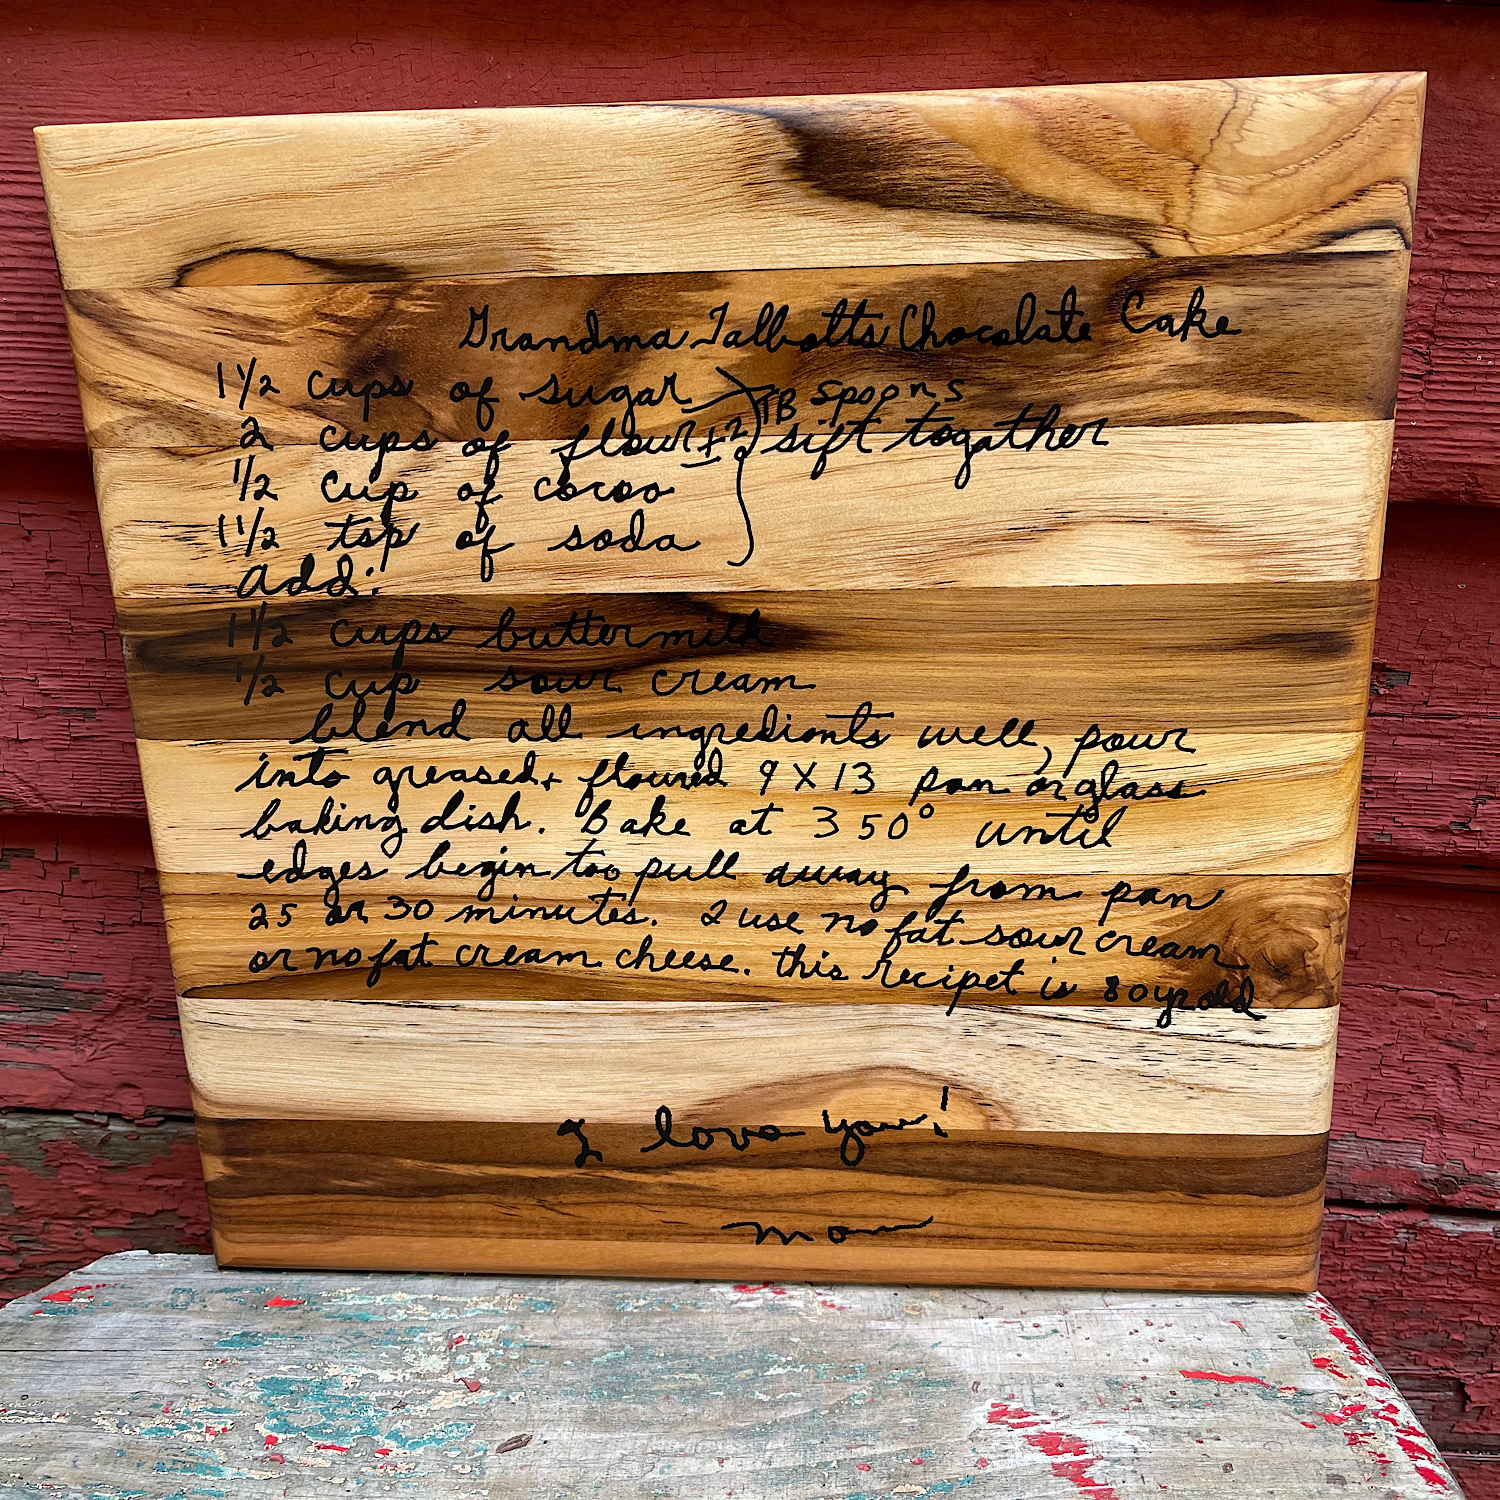 Grandma Talbotts Chocolate Cake
1 1/2 cups of sugar
2 cups of flour + 2 TB spoons
1/2 cup of cocoo
1 1/2 tsp of soda
sift togather
add:
1 1/2 cups buttermilk
1/2 cup sour cream
blend all ingredionts well, pour
into greased + floured 9 X 13 pan or glass
baking dish. Bake at 350° until
edges begin too pull away from pan
25 or 30 minutes. I use no fat sour cream
or no fat cream cheese. this recipet is 80 yr old
I love you!
Mom